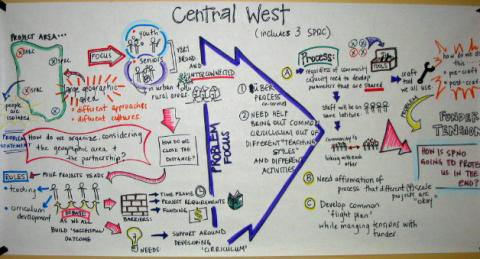 Central West
(includes 3 SPRC)
PROJECT AREA...
SPRC
SPRC
SPRC
people are
isolated
large geographic
area
different approaches
different cultures
FOCUS
youth
Seniors
VERY
BROAD
AND
INTERCONNECTED
in urban
rural areas
PROBLEM
How do we organize, considering
the geographic area +
the partnership?
HOW DO WE
CLOSE THE
DISTANCE?
ROLES
MINE PROJECTS YEARS
teaching
curriculum development
DEBATE
AS WE ALL
BUILD "SUCCESSFUL"
OUTCOME
BARRIERS:
TIME FRAME
PROJECT REQUIREMENTS
FUNDING
NEEDS:
SUPPORT AROUND
DEVELOPING
"CURRICULUM"
PROBLEM
FOCUS
① ÜBER
PROCESS
② NEED HELP
BRING OUT COMMON
CURRICULUM OUT OF
DIFFERENT "TEACHING
STYLES"
AND DIFFERENT
ACTIVITIES
Process:
A
regardless of community
capacity need to develop
parameters that are shared
TOOLS
craft
tool
we all use
pre-craft
post-craft
Staff will be on
same wavelength
community is
talking with each other
PROBLEM
FUNDER
TENSION
HOW IS SPNO
GOING TO PROTECT
US IN THE
END?
B
Need affirmation of
process that different scale
projects are
"okay"
C
Develop common
"flight plan"
while manging tensions with
funder.